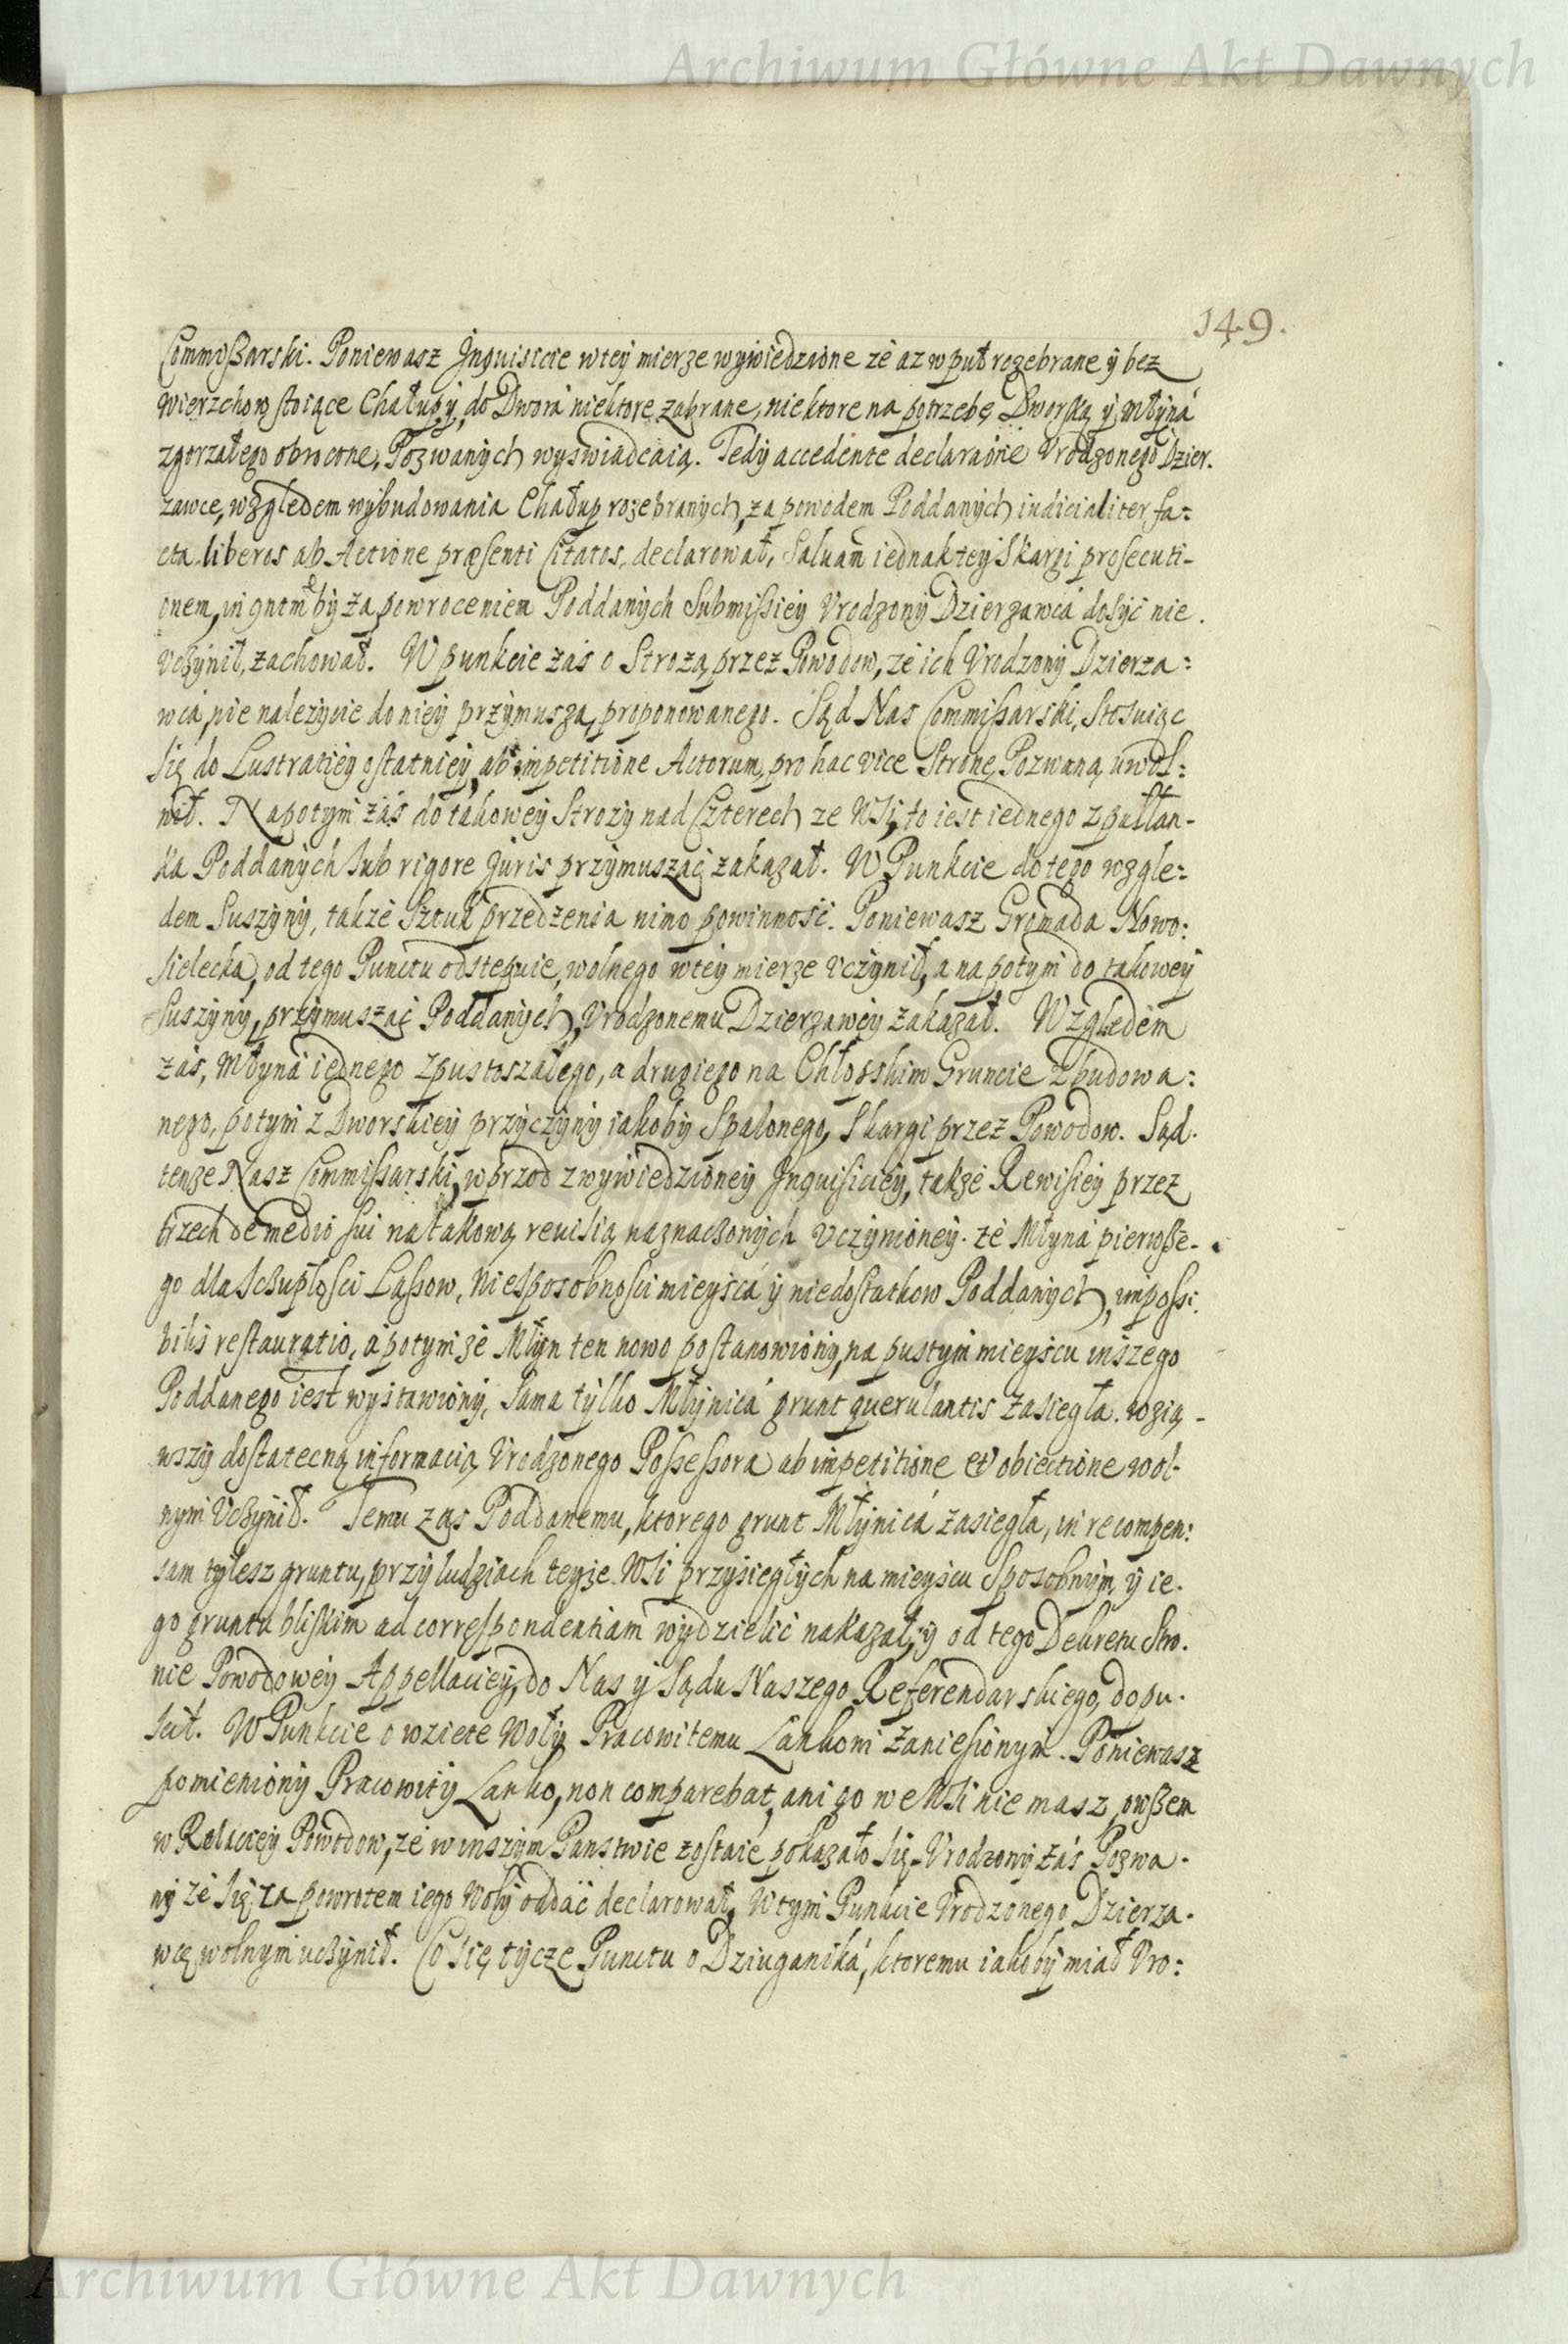 Archiwum Główne Akt Dawnych
149.
Commißarski. Poniewasz Jnquisicie wtey mierze wywiedzione że az w puł rozebrane y bez
wierzchow stoiące Chałupy, do Dworá niektore zabrane, niektore na potrzebę Dworską y Młyná
zgorzałego obrocone, Pozwanych wyswiadcaią. Tedy accedente declaraõne Vrodzonego Dzier.
zawce, względem wybudowania Chałup rozebranych, za powodem Poddanych iudicialiter fa:
cta liberos ab Actione præsenti Citatos, declarował, Saluam iednak tey Skargi prosecuti-
onem, in qntm by za powroceniem Poddanych Submissiey Vrodzony Dzierzawcá dosyć nie.
Vczynił, zachował. W punkcie zas o Strożą przez Powodow, że ich Vrodzony Dzierza:
wcá, nie nalezycie do niey przymusza, proponowanego. Sąd Nas Commissarski, Stosuiąc
Się do Lustratiey ostatniey, ab impetitione Actorum, pro hac vice Stronę Pozwaną uwol:
nił. Napotym zás do takowey Strozy nad Czterech ze WSi, to iest iednego z pułłan-
ka Poddanych Sub rigore Juris przymuszać zakazał. W Punkcie do tego wzglę:
dem Suszyny, takze Sztuk przedzenia nimo powinność. Poniewasz Gromada Nowo:
sielecka, od tego Punctu odstepuie, wolnego wtey mierze Vczynił, a na potym do takowey
Suszyny, przymuszać Poddanych, Vrodzonemu Dzierzawcy zakazał. Względem
zás, Młyná iednego Zpustoszałego, a drugiego na Chłopskim Gruncie Zbudowa:
nego, potym z Dworskiey przyczyny iakoby Spalonego, Skargi przez Powodow. Sąd.
tenze Nasz Commissarski, w przod z wywiedzioney Jnquisiciey, takze Rewisiey przez
trzech de medio sui na takową reuisią naznaczonych Vczynioney. że Młyná pierwsze-
go dla Sczupłosci Lassow, niesposobnosci mieyscá y niedostatkow Poddanych, impossi:
bilis restauratio, á potym że Młyn ten nowo postanowiony, na pustym mieyscu inszego
Poddanego iest wystawiony, Sama tylko Młynicá grunt querulantis zasiegła. wzią-
wszy dostateczną informacią Vrodzonego Possessora ab impetitione et obiectione wol-
nym Vczynił. Temu zas Poddanemu, ktorego grunt Młynicá zasiegła, in recompen:
sam tylesz gruntu, przy ludziach teyze WSi przysiegłych na mieyscu Sposobnym, y ie.
go gruntu bliskim ad correspondentiam wydzielić nakazał, y od tego Dekretu Stro.
nie Powodowey Appellaciey, do Nas y Sądu Naszego Referendarskiego, dopu.
scił. W Punkcie o wziete Woły Pracowitemu Lankowi zaniesionym. Poniewasz
pomieniony Pracowity Lanko, non comparebat, ani go we WSi nie masz, owszem
w Relaciey Powodow, że w inszym Panstwie zostaie pokazało Się. Vrodzony zás Pozwa.
ny że Się za powrotem iego Woły oddać declarował, W tym Punkcie Vrodzonego Dzierza.
wcę wolnym uczynił. Co Się tycze Punctu o Dziuganiká, ktoremu iakoby miał Vro:
Archiwum Główne Akt Dawnych